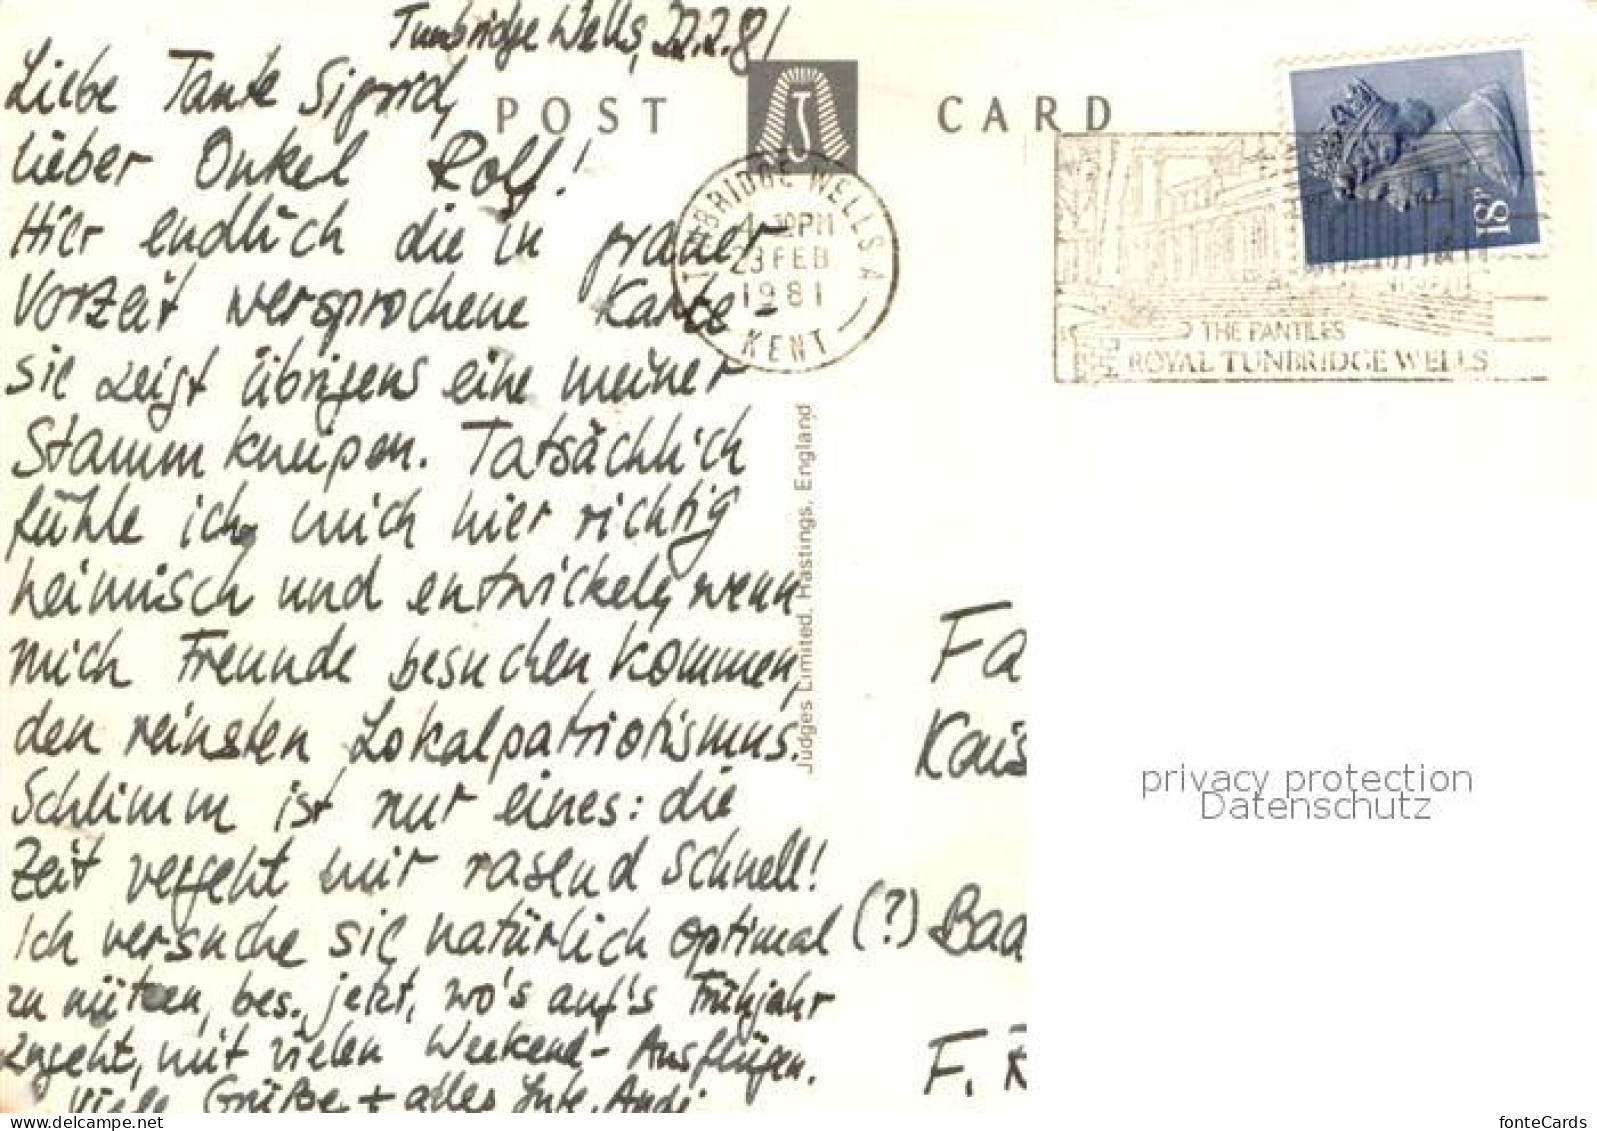 Tunbridge Wells, 22.2.81
Liebe Tante Sigrid,
lieber Onkel Rolf!
Hier endlich die in grauer
Vorzeit versprochene Karte -
sie zeigt übrigens eine meiner
Stammkneipen. Tatsächlich
fühle ich mich hier richtig
heimisch und entwickele, wenn
mich Freunde besuchen kommen,
den reinsten Lokalpatriotismus.
Schlimm ist nur eines: die
Zeit vergeht mir rasend schnell!
Ich versuche sie natürlich optimal (?)
zu nützen, bes. jetzt, wo's auf's Frühjahr
zugeht, mit vielen Weekend-Ausflügen.
Viele Grüße + alles Gute, Andi
POST CARD
TUNBRIDGE WELLS A
4-30PM
23 FEB
1981
KENT
THE PANTILES
ROYAL TUNBRIDGE WELLS
18P
Judges Limited, Hastings, England
Fa
Kais
Baa
F. R
privacy protection
Datenschutz
fonteCards